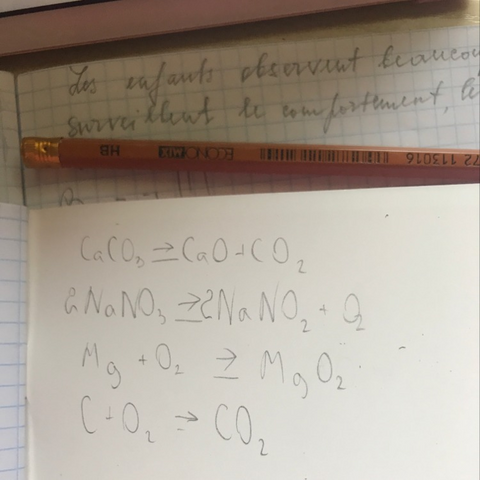 Les enfants observent beaucou
surveillent le comportement, le
HB ECONOMIX 72 113016
CaCO₃ ⇒ CaO + CO₂
2NaNO₃ ⇒ 2NaNO₂ + O₂
Mg + O₂ ⇒ MgO₂
C + O₂ → CO₂